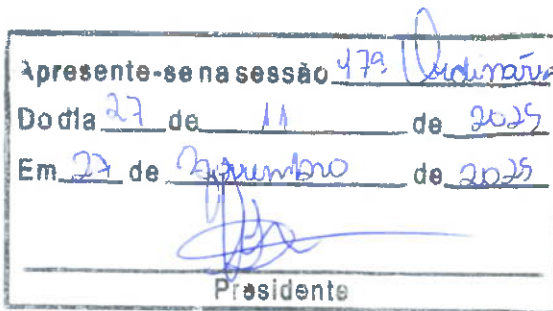 Apresente-se na sessão 47ª Ordinária
Do dia 27 de 11 de 2025
Em 27 de Novembro de 2025
Presidente